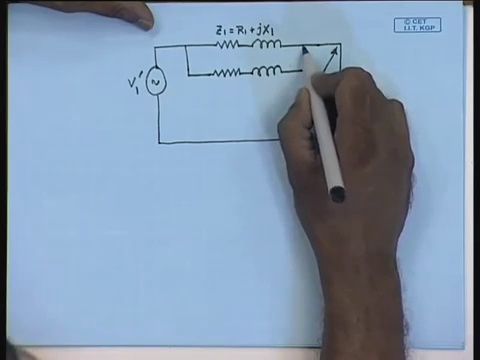 © CET
I.I.T. KGP
Z₁ = R₁ + jX₁
V₁'
~